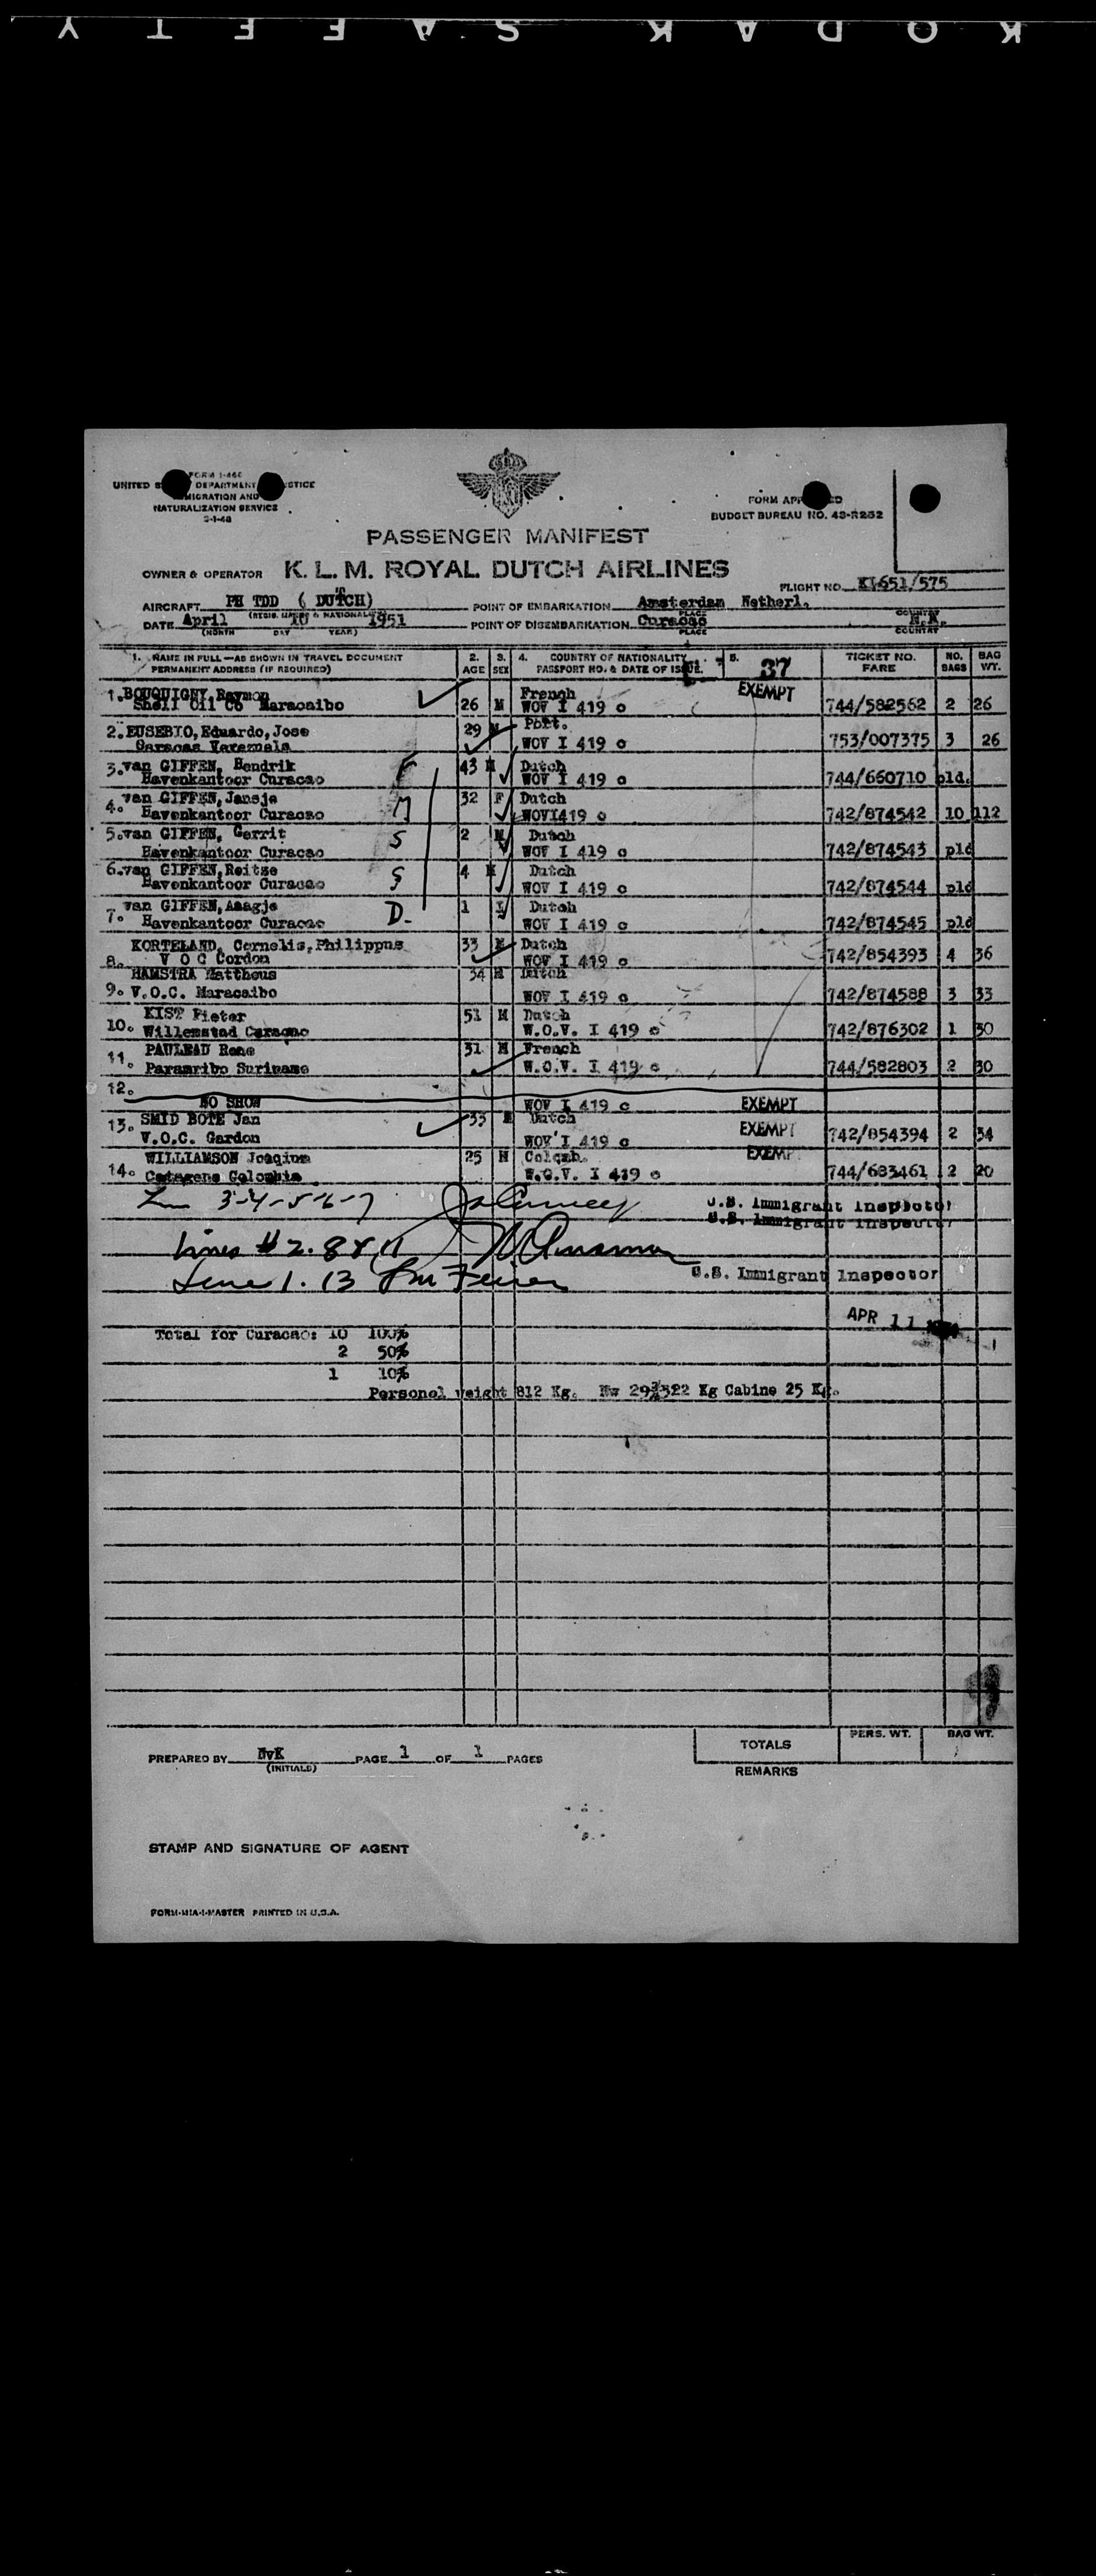 KODAK SAFETY
FORM I-466
UNITED DEPARTMENT
IMMIGRATION AND
NATURALIZATION SERVICE
FORM
BUDGET BUREAU NO. 43-R252
PASSENGER MANIFEST
OWNER & OPERATOR K. L. M. ROYAL DUTCH AIRLINES
FLIGHT NO. KL651/575
AIRCRAFT PH TDD ( DUTCH) POINT OF EMBARKATION Amsterdam Netherl.
DATE April 10 1951 POINT OF DISEMBARKATION Curacao N.A.
(MONTH DAY YEAR) PLACE COUNTRY
1. NAME IN FULL—AS SHOWN IN TRAVEL DOCUMENT 2. 3. 4. COUNTRY OF NATIONALITY 5. 37 TICKET NO. NO. BAG
PERMANENT ADDRESS (IF REQUIRED) AGE SEX PASSPORT NO. & DATE OF ISSUE. FARE BAGS WT.
1. BOUQUIGNY, Raymon French EXEMPT
Shell Oil Co Maracaibo 26 M WOV I 419 c 744/582562 2 26
2. EUSEBIO, Eduardo, Jose 29 M Port.
WOV I 419 c 753/007375 3 26
3. van GIFFEN, Hendrik F 43 M Dutch
Havenkantoor Curacao WOV I 419 c 744/660710 pld.
4. van GIFFEN, Jansje M 32 F Dutch
Havenkantoor Curacao WOVI419 c 742/874542 10 112
5. van GIFFEN, Gerrit S 2 M Dutch
Havenkantoor Curacao WOV I 419 c 742/874543 pld
6. van GIFFEN, Reitze S 4 M Dutch
Havenkantoor Curacao WOV I 419 c 742/874544 pld
7. van GIFFEN, Aaagje D- 1 Dutch
Havenkantoor Curacao WOV I 419 c 742/874545 pld
KORTELAND, Cornelis, Philippus 33 M Dutch
8. V O C Cordon WOV I 419 c 742/854393 4 36
HAMSTRA Mattheus 34 M Dutch
9. V.O.C. Maracaibo WOV I 419 c 742/874588 3 33
KIST Pieter 51 M Dutch
10. Willemstad Curacao W.O.V. I 419 c 742/876302 1 30
PAULEAU Rene 31 M French
11. Paramribo Suriname W.O.V. I 419 c 744/582803 2 30
12.
NO SHOW WOV I 419 c EXEMPT
13. SMID BOTE Jan 33 M Dutch EXEMPT
V.O.C. Gardon WOV I 419 c 742/854394 2 34
WILLIAMSON Joaqium 25 M Colomb. EXEMPT
14. Catagena Colombia W.O.V. I 419 c 744/683461 2 20
3-4-5-6-7 U.S. Immigrant Inspector
U.S. Immigrant Inspector
Lines # 2. 8 & 11
Line 1. 13 U.S. Immigrant Inspector
APR 11
Total for Curacao: 10 100%
2 50%
1 10%
Personel weight 812 Kg. Kg Cabine 25 Kg.
PREPARED BY NvK PAGE 1 OF 1 PAGES
(INITIALS)
TOTALS PERS. WT. BAG WT.
REMARKS
STAMP AND SIGNATURE OF AGENT
FORM-MIA-1-MASTER PRINTED IN U.S.A.